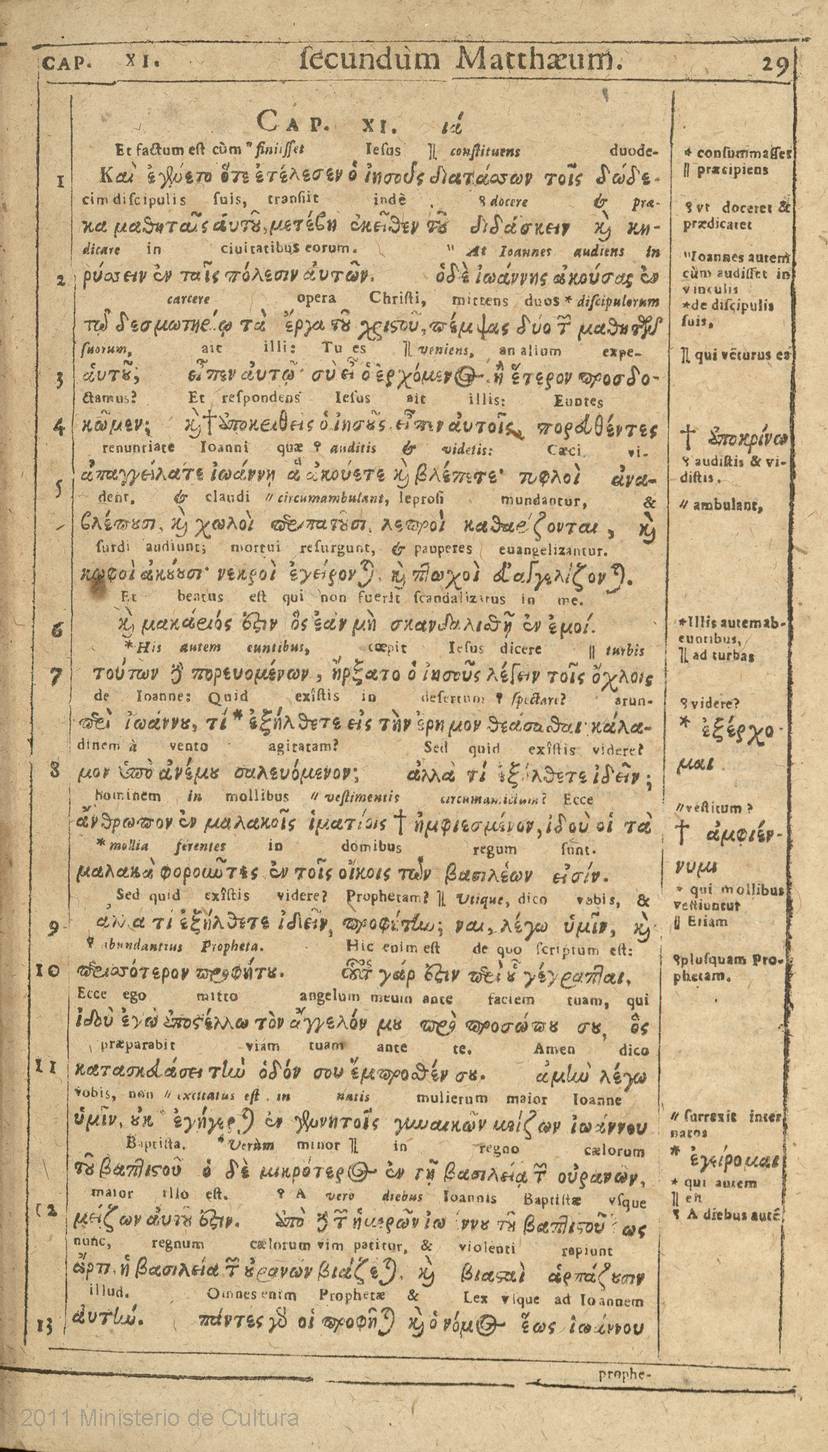 CAP. XI. secundùm Matthæum. 29
CAP. XI. ιά
Et factum est cùm " finiisset Iesus ][ constituens duode-
1 Καὶ ἐγένετο ὅτε ἐτέλεσεν ὁ ἰησοῦς διατάσσων τοῖς δώδε-
cim discipulis suis, transiit indè , ༑ docere & præ-
κα μαθηταῖς ἀυτοῦ, μετέβη ἐκεῖθεν τοῦ διδάσκειν καὶ κη-
dicare in ciuitatibus eorum. " At Ioannes audiens in
2 ρύσσειν ἐν ταῖς πόλεσιν ἀυτῶν. ὁ δὲ ἰωάννης ἀκούσας ἐν
carcere opera Christi, mittens duos * discipulorum
τῷ δεσμωτηρίῳ τὰ ἔργα τοῦ χριστοῦ, πέμψας δύο τῶν μαθητῶν
suorum, ait illi: Tu es ][ veniens, an alium expe-
3 ἀυτοῦ; εἶπεν ἀυτῷ· σὺ εἶ ὁ ἐρχόμενος, ἢ ἕτερον προσδο-
ctamus? Et respondens Iesus ait illis: Euntes
4 κῶμεν; καὶ † ἀποκριθεὶς ὁ ἰησοῦς εἶπεν ἀυτοῖς, πορευθέντες
renuntiate Ioanni quæ ༑ auditis & videtis: Cæci vi-
ἀπαγγείλατε ἰωάννῃ ἃ ἀκούετε καὶ βλέπετε· τυφλοὶ ἀνα-
5 dent, & claudi // circumambulant, leprosi mundantur, &
βλέπουσι, καὶ χωλοὶ περιπατοῦσι, λεπροὶ καθαρίζονται, καὶ
surdi audiunt; mortui resurgunt, & pauperes euangelizantur.
κωφοὶ ἀκούουσι· νεκροὶ ἐγείρονται, καὶ πτωχοὶ ἐυαγγελίζονται.
Et beatus est qui non fuerit scandalizatus in me.
6 καὶ μακάριός ἐστιν ὃς ἐὰν μὴ σκανδαλισθῇ ἐν ἐμοί.
* His autem euntibus, cœpit Iesus dicere || turbis
7 τούτων δὲ πορευομένων, ἤρξατο ὁ ἰησοῦς λέγειν τοῖς ὄχλοις
de Ioanne: Quid exîstis in desertum ༑ spectare? arun-
περὶ ἰωάννου, τί * ἐξήλθετε εἰς τὴν ἔρημον θεάσασθαι· κάλα-
dinem à vento agitatam? Sed quid exîstis videre?
8 μον ὑπὸ ἀνέμου σαλευόμενον; ἀλλὰ τί ἐξήλθετε ἰδεῖν;
hominem in mollibus // vestimentis Ecce
ἄνθρωπον ἐν μαλακοῖς ἱματίοις † ἠμφιεσμένον, ἰδοὺ οἱ τὰ
* mollia ferentes in domibus regum sunt.
μαλακὰ φοροῦντες ἐν τοῖς οἴκοις τῶν βασιλέων εἰσίν.
Sed quid exîstis videre? Prophetam? ][ Vtique, dico vobis, &
9 ἀλλὰ τί ἐξήλθετε ἰδεῖν, προφήτην; ναι, λέγω ὑμῖν, καὶ
༑ abundantius Propheta. Hic enim est de quo scriptum est:
10 περισσότερον προφήτου. οὗτος γάρ ἐστιν περὶ οὗ γέγραπται,
Ecce ego mitto angelum meum ante faciem tuam, qui
ἰδοὺ ἐγὼ ἀποστέλλω τὸν ἄγγελόν μου πρὸ προσώπου σου, ὃς
præparabit viam tuam ante te. Amen dico
11 κατασκευάσει τὴν ὁδόν σου ἔμπροσθέν σου. ἀμὴν λέγω
vobis, non // excitatus est in natis mulierum maior Ioanne
ὑμῖν, οὐκ ἐγήγερται ἐν γεννητοῖς γυναικῶν μείζων ἰωάννου
Baptista. * Verùm minor ][ in regno cælorum
τοῦ βαπτιστοῦ ὁ δὲ μικρότερος ἐν τῇ βασιλείᾳ τῶν οὐρανῶν,
maior illo est. ༑ A vero diebus Ioannis Baptistæ vsque
12 μείζων ἀυτοῦ ἐστιν. ἀπὸ δὲ τῶν ἡμερῶν ἰωάννου τοῦ βαπτιστοῦ ἕως
nunc, regnum cælorum vim patitur, & violenti rapiunt
ἄρτι, ἡ βασιλεία τῶν οὐρανῶν βιάζεται, καὶ βιασταὶ ἁρπάζουσιν
illud. Omnes enim Prophetæ & Lex vsque ad Ioannem
13 ἀυτήν. πάντες γὰρ οἱ προφῆται καὶ ὁ νόμος ἕως ἰωάννου
prophe-
* consummasset
|| præcipiens
༑ vt doceret &
prædicaret
" Ioannes autem
cùm audisset in
vinculis
* de discipulis
suis,
][ qui vẽturus es
† ἀποκρίνω
༑ audistis & vi-
distis.
// ambulant,
* Illis autem ab-
euntibus,
][ ad turbas
༑ videre?
* ἐξέρχο-
μαι
// vestitum?
† ἀμφιέν-
νυμι
* qui mollibus
vestiuntur
|| Etiam
༑ plusquam Pro-
phetam.
// surrexit inter
natos
* ἐγείρομαι
* qui autem
][ est
༑ A diebus autẽ
2011 Ministerio de Cultura